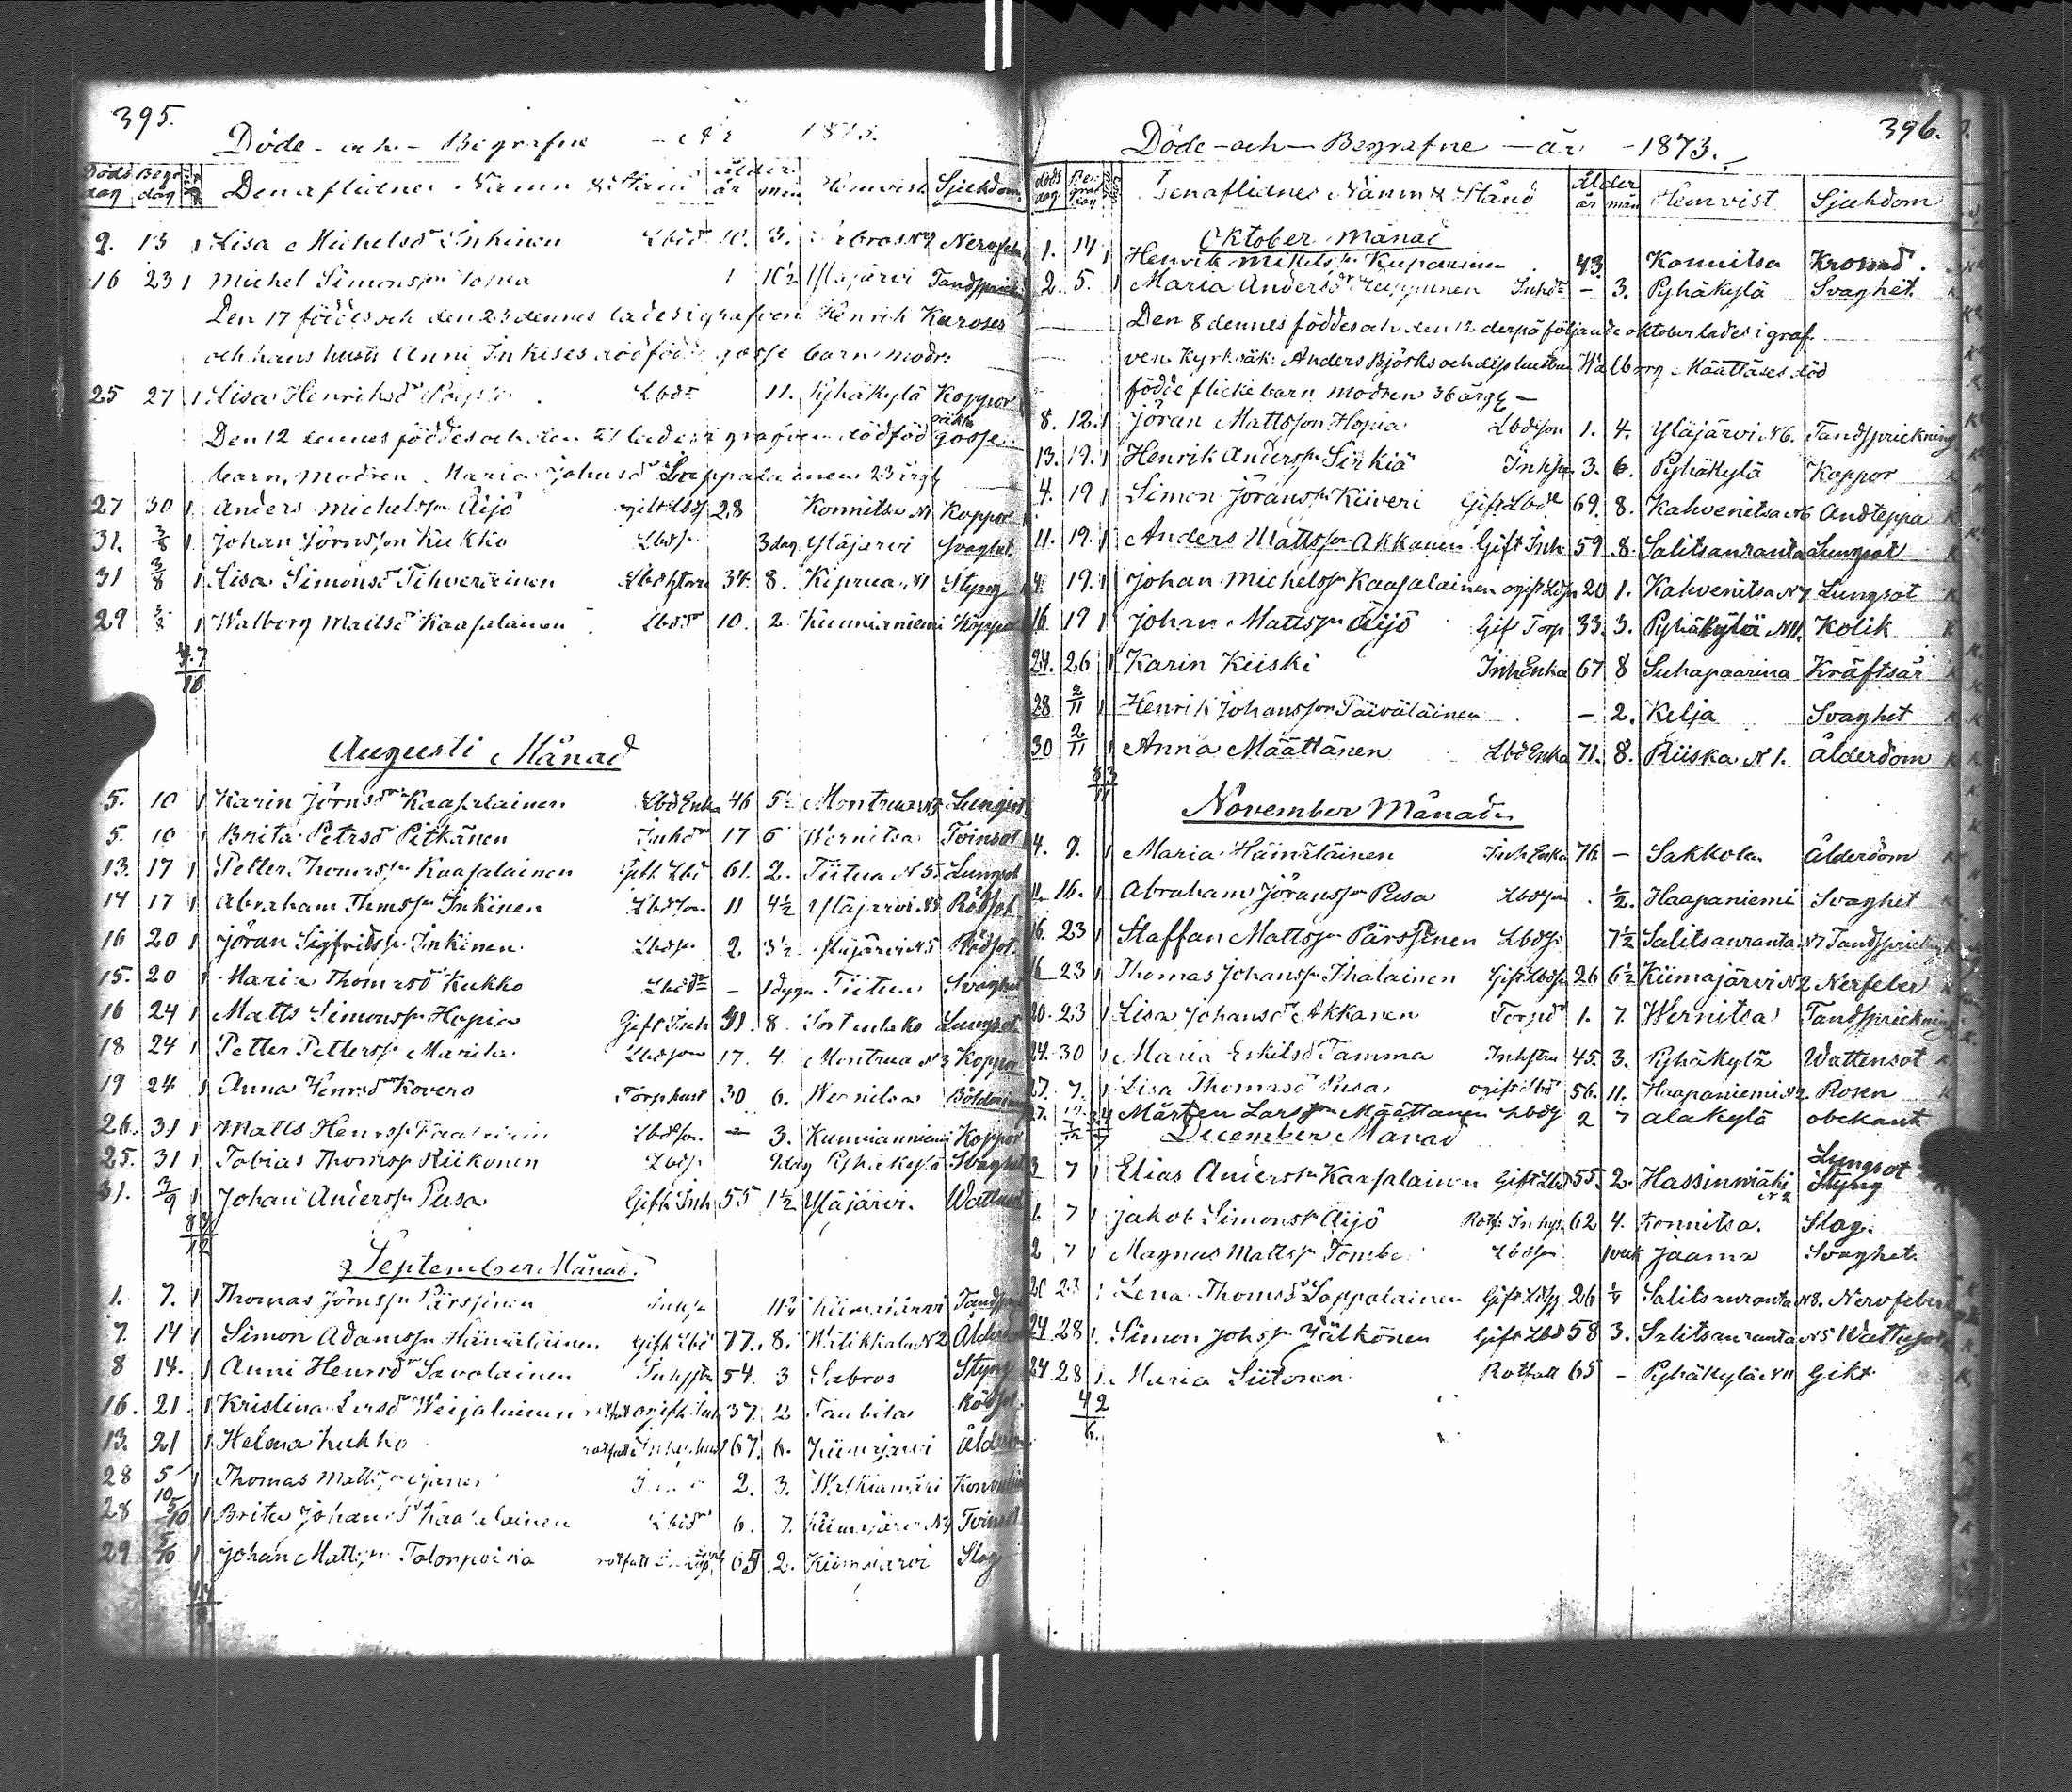 395.
Döde - och - Begrafne - år 1873.
Döds dag Begr dag Den aflidnes Namn & Stånd ålder år mån Hemvist Sjukdom
9. 13 1 Lisa Michelsdr Inkinen Lbdr 10. 3. Nerffeb
16 23 1 Michel Simonsson Hopia 1 10½ Yläjärvi Tandsprick
Den 17 föddes och den 23 dennes lades i grafven Henrik Karoses
och hans hustr Anni Inkises dödfödde gosse barn. modr:
25 27 1 Lisa Henriksdr Lbdr 11. Pyhäkylä Koppor
Den 12 dennes föddes och den 27 lades i grafven dödföd oäkta gosse
barn, modren Maria Johnsdr Lappalainen 23 årgl
27 30 1 Anders Michelsson Äijö gift Lbdr 28 Konnitsa N1 Koppor
31. 3/8 1 Johan Jörnsson Kukko Lbdsn 3 dag Yläjärvi Svaghet
31 3/8 1 Lisa Simonsdr Tihveräinen Lbdhstru 34. 8. Kiprua N1 Styng
29 3/8 1 Walborg Mattsdr Kaasalainen Lbdr 10. 2 Kunnianiemi Koppor
10
Augusti Månad
5. 10 1 Karin Jörnsdr Kaasalainen Lbd Enka 46 5½ Montrua N3 Lungsot
5. 10 1 Brita Petrsdr Pitkänen Inhdr 17 6 Wernitsa Tvinsot
13. 17 1 Petter Thomsson Kaasalainen Gift Lbd 61. 2. Tiitua N 5. Lungsot
14 17 1 Abraham Thmsson Inkinen Lbdson 11 4½ Yläjärvi N5 Rödsot
16 20 1 Jöran Sigfridsson Inkinen Lbdsn 2. 3½ Yläjärvi N5 Rödsot.
15. 20 1 Maria Thomasdr Kukko Lbdr - 1 dygn Tiitua Svaghet
16 24 1 Matts Simonsson Hopia Gift Inh 31. 8. Lungsot
18 24 1 Petter Pettersson Lbdson 17. 4. Montrua N3 Koppor
19 24 1 Anna Henrsdr Kovero Torphust 30 6. Wernitsa Böldning
26. 31 1 Matts Henrsson Lbdson. - 3. Kunnianiemi Koppor
25. 31 1 Tobias Thomsson Riikonen Lbdsn 9 dag Pyhäkylä Svaghet
31. 3/9 1 Johan Andersson Pusa Gift Inh 55 1½ Yläjärvi. Wattusot
12
September Månad.
1. 7. 1 Thomas Jörnsson Pärssinen Inhsn 11¼ Kiimajärvi Tandspr
7. 14 1 Simon Adamsson Hämäläinen Gift Lbd 77. 8. Wilikkala N2 Ålderdom
8 14. 1 Anni Henrsdr Savolainen Inhstr 54. 3 Styng
16. 21. 1 Kristina Larsdr Weijalainen ogift Inh 37. 2 Taubila Rödsot
13. 21 1 Helena Kukko rotfatt Inhys hust 67. 6. Kiimajärvi ålderdom
28 5/10 1 Thomas Mattsson 2. 3. Walkiamäki
28 5/10 1 Brita Johansdr Kaasalainen Lbdr 6. 7. Kiimajärvi N4 Tvinsot
29 5/10 1 Johan Mattsson Talonpoika rotfatt 65 2. Kiimajärvi Slag
396.
Döde - och - Begrafne - år - 1873.
döds dag Begraf dag Den aflidnes Namn & Stånd Ålder år mån Hemvist Sjukdom
Oktober månad
1. 14 1 Henrik Mikelsson Kuparinen 43. Konnitsa Krossad.
2. 5. 1 Maria Andersdr Inhdr - 3. Pyhäkylä Svaghet.
Den 8 dennes föddes och den 12 derpå följande oktober lades i graf
ven Kyrksäk: Anders Björks och dess hustrus Walborg Määttäses död
födde flickebarn modren 36 årgl -
8. 12. 1 Jöran Mattsson Hopia Lbdson 1. 4. Yläjärvi N6. Tandsprickning
13. 19. 1 Henrik Andersson Sirkiä Inhsn 3. 6. Pyhäkylä Koppor
4. 19 1 Simon Jöransson Kiiveri Gift Lbd 69. 8. Kahvenitsa N6 Andteppa
11. 19. 1 Anders Mattsson Akkanen Gift Inh 59 8. Salitsanranta Lungsot
4. 19. 1 Johan Michelsson Kaasalainen ogift Ldsn 20 1. Kahvenitsa N7 Lungsot
16 19 1 Johan Mattsson Äijö Gif Torp 33. 3. Pyhäkylä N11. Kolik
24. 26 1 Karin Kiiski Inh Enka 67 8 Suhapaarina Kräftsår
28 2/11 1 Henrik Johansson Päiväläinen - 2. Kelja Svaghet
30 2/11 1 Anna Määttänen Lbd Enka 71. 8. Riiska N 1. Ålderdom
11
November Månad
4. 9. 1 Maria Hämäläinen Inh Enka 76. - Sakkola Ålderdom
11. 16. 1 Abraham Jöransson Pusa Lbdsn . ½. Haapaniemi Svaghet
16. 23 1 Staffan Mattsson Pärssinen Lbdsn 7½ Salitsanranta N7 Tandsprickn
16 23 1 Thomas Johansson Ihalainen Gift Lbdsn 26 6½ Kiimajärvi N2 Nerfeber
20. 23 1 Lisa Johansdr Akkanen Torpdr 1. 7. Wernitsa Tandsprickning
24. 30 1 Maria Eskilsdr Tamma Inhstru 45. 3. Pyhäkylä Wattensot
27. 7. 1 Lisa Thomasdr Pusa ogift Lbd 56. 11. Haapaniemi N2 Rosen
27. Mårten Larsson Määttänen Lbdsn 2 7 alakylä obekant
December Månad
3 7 1 Elias Andersson Kaasalainen Gift Lbd 55. 2. Hassinmäki N2 Lungsot Styng
1. 7 1 Jakob Simonsson Äijö Rotf. Inhys. 62 4. Konnitsa. Slag.
2 7 1 Magnus Mattsson Tombe Lbdson 1 veck Jaama Svaghet.
20 23 1 Lena Thomsdr Lappalainen Gift Ldsg 26 ¼ Salitsanranta N8. Nervfeber
24 28 1. Simon Johsson Jälkönen Gift Lbd 58 3. Salitsanranta N5 Wattusot
24. 28 1. Maria Siitonen Rotfatt 65 - Pyhäkylä N11 Gikt
42
6.